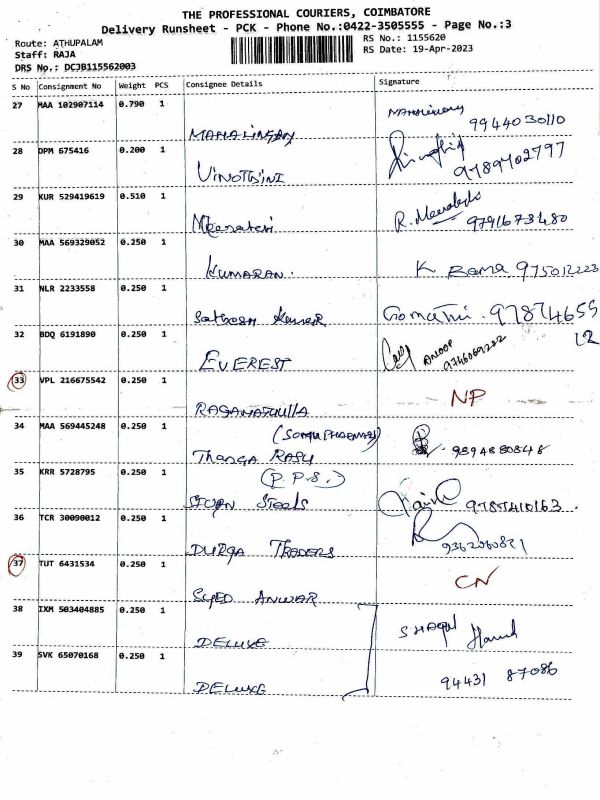 THE PROFESSIONAL COURIERS, COIMBATORE
Delivery Runsheet - PCK - Phone No.:0422-3505555 - Page No.:3
Route: ATHUPALAM
RS No.: 1155620
Staff: RAJA
RS Date: 19-Apr-2023
DRS No.: DCJB115562003
S No Consignment No Weight PCS Consignee Details Signature
27 MAA 102907114 0.790 1
MAHALINGAM 9944030110
28 DPM 675416 0.200 1
VINOTHINI 9789702797
29 KUR 529419619 0.510 1
Meenatchi R. 9791673480
30 MAA 569329052 0.250 1
KUMARAN. K Rama 975012223
31 NLR 2233558 0.250 1
Sathosh Kumar Gomathi. 97874655
12
32 BDQ 6191890 0.250 1
EVEREST ANOOP 9746069202
33 VPL 216675542 0.250 1
NP
34 MAA 569445248 0.250 1
(SOMU PHARMACY)
Thanga RAJU 9894880848
35 KRR 5728795 0.250 1
(P.P.S.)
Steels 9787410163.
36 TCR 30090012 0.250 1
DURGA TRADERS 9362060821
37 TUT 6431534 0.250 1
CN
SYED ANWAR
38 IXM 503404885 0.250 1
DELUXE
39 SVK 65070168 0.250 1
DELUXE 94431 87086